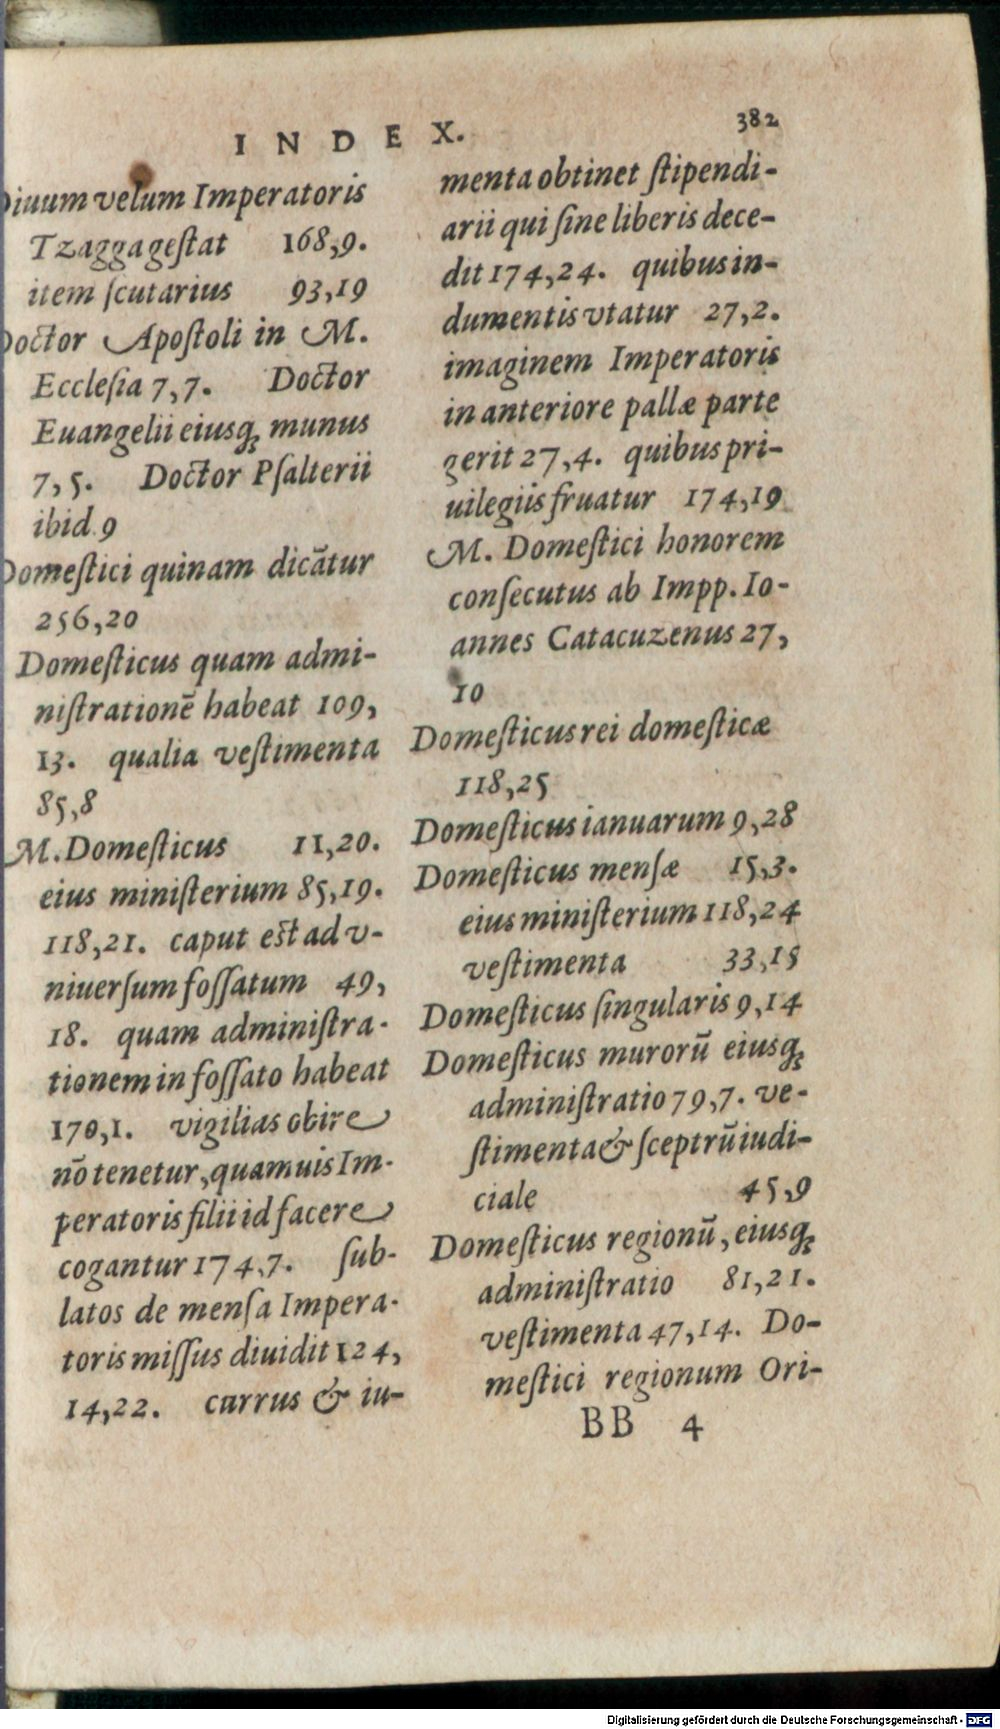 INDEX.
382
Diuum velum Imperatoris
Tzagga gestat 168,9.
item scutarius 93,19
Doctor Apostoli in M.
Ecclesia 7,7. Doctor
Euangelii eiusq; munus
7,5. Doctor Psalterii
ibid. 9
Domestici quinam dicātur
256,20
Domesticus quam admi-
nistrationē habeat 109,
13. qualia vestimenta
85,8
M. Domesticus 11,20.
eius ministerium 85,19.
118,21. caput est ad v-
niuersum fossatum 49,
18. quam administra-
tionem in fossato habeat
170,1. vigilias obire
nō tenetur, quamuis Im-
peratoris filii id facere
cogantur 174,7. sub-
latos de mensa Impera-
toris missus diuidit 124,
14,22. currus & iu-
menta obtinet stipendi-
arii qui sine liberis dece-
dit 174,24. quibus in-
dumentis vtatur 27,2.
imaginem Imperatoris
in anteriore pallæ parte
gerit 27,4. quibus pri-
uilegiis fruatur 174,19
M. Domestici honorem
consecutus ab Impp. Io-
annes Catacuzenus 27,
10
Domesticus rei domesticæ
118,25
Domesticus ianuarum 9,28
Domesticus mensæ 15,3.
eius ministerium 118,24
vestimenta 33,15
Domesticus singularis 9,14
Domesticus murorū eiusq;
administratio 79,7. ve-
stimenta & sceptrū iudi-
ciale 45,9
Domesticus regionū, eiusq;
administratio 81,21.
vestimenta 47,14. Do-
mestici regionum Ori-
BB 4
Digitalisierung gefördert durch die Deutsche Forschungsgemeinschaft - DFG